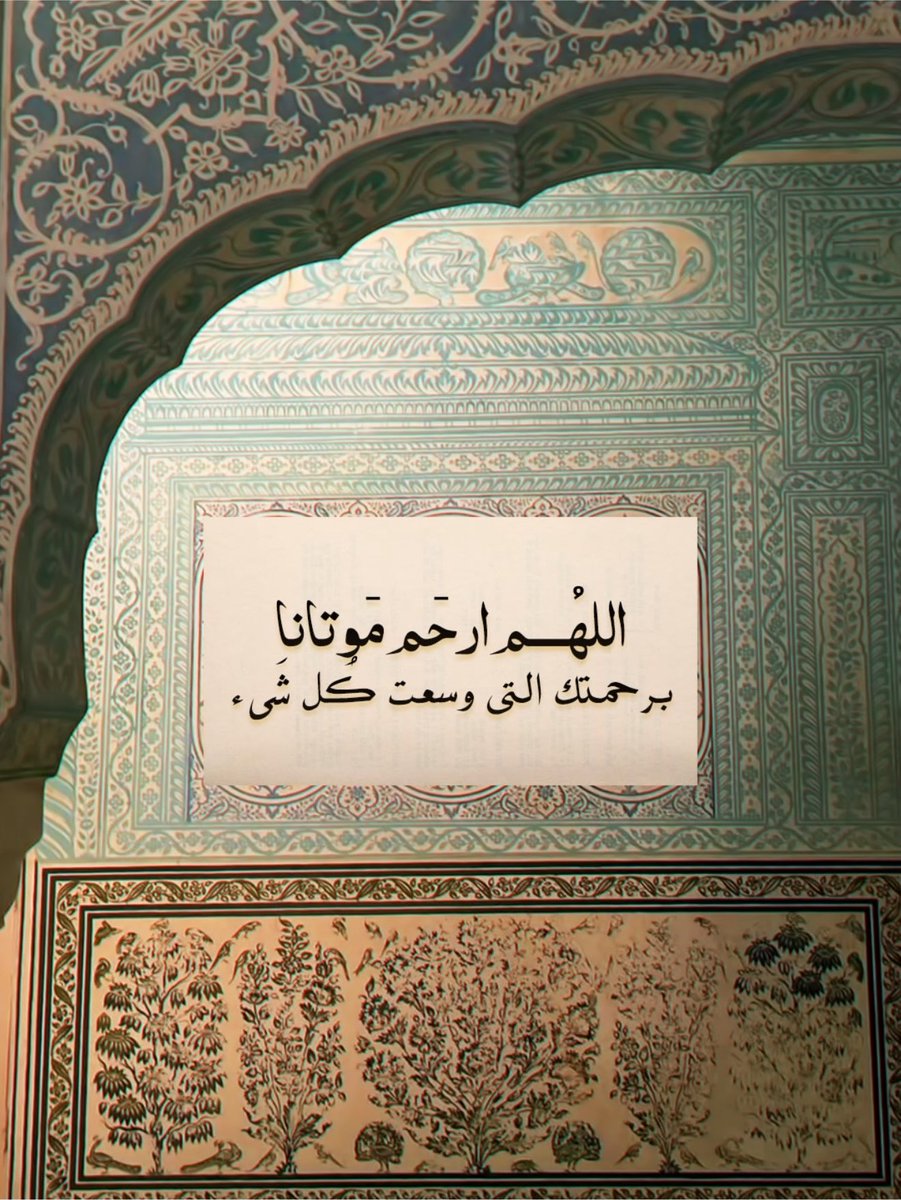 اللهُـم ارحَم مَوتانا
برحمتك التى وسعت كُل شَىء